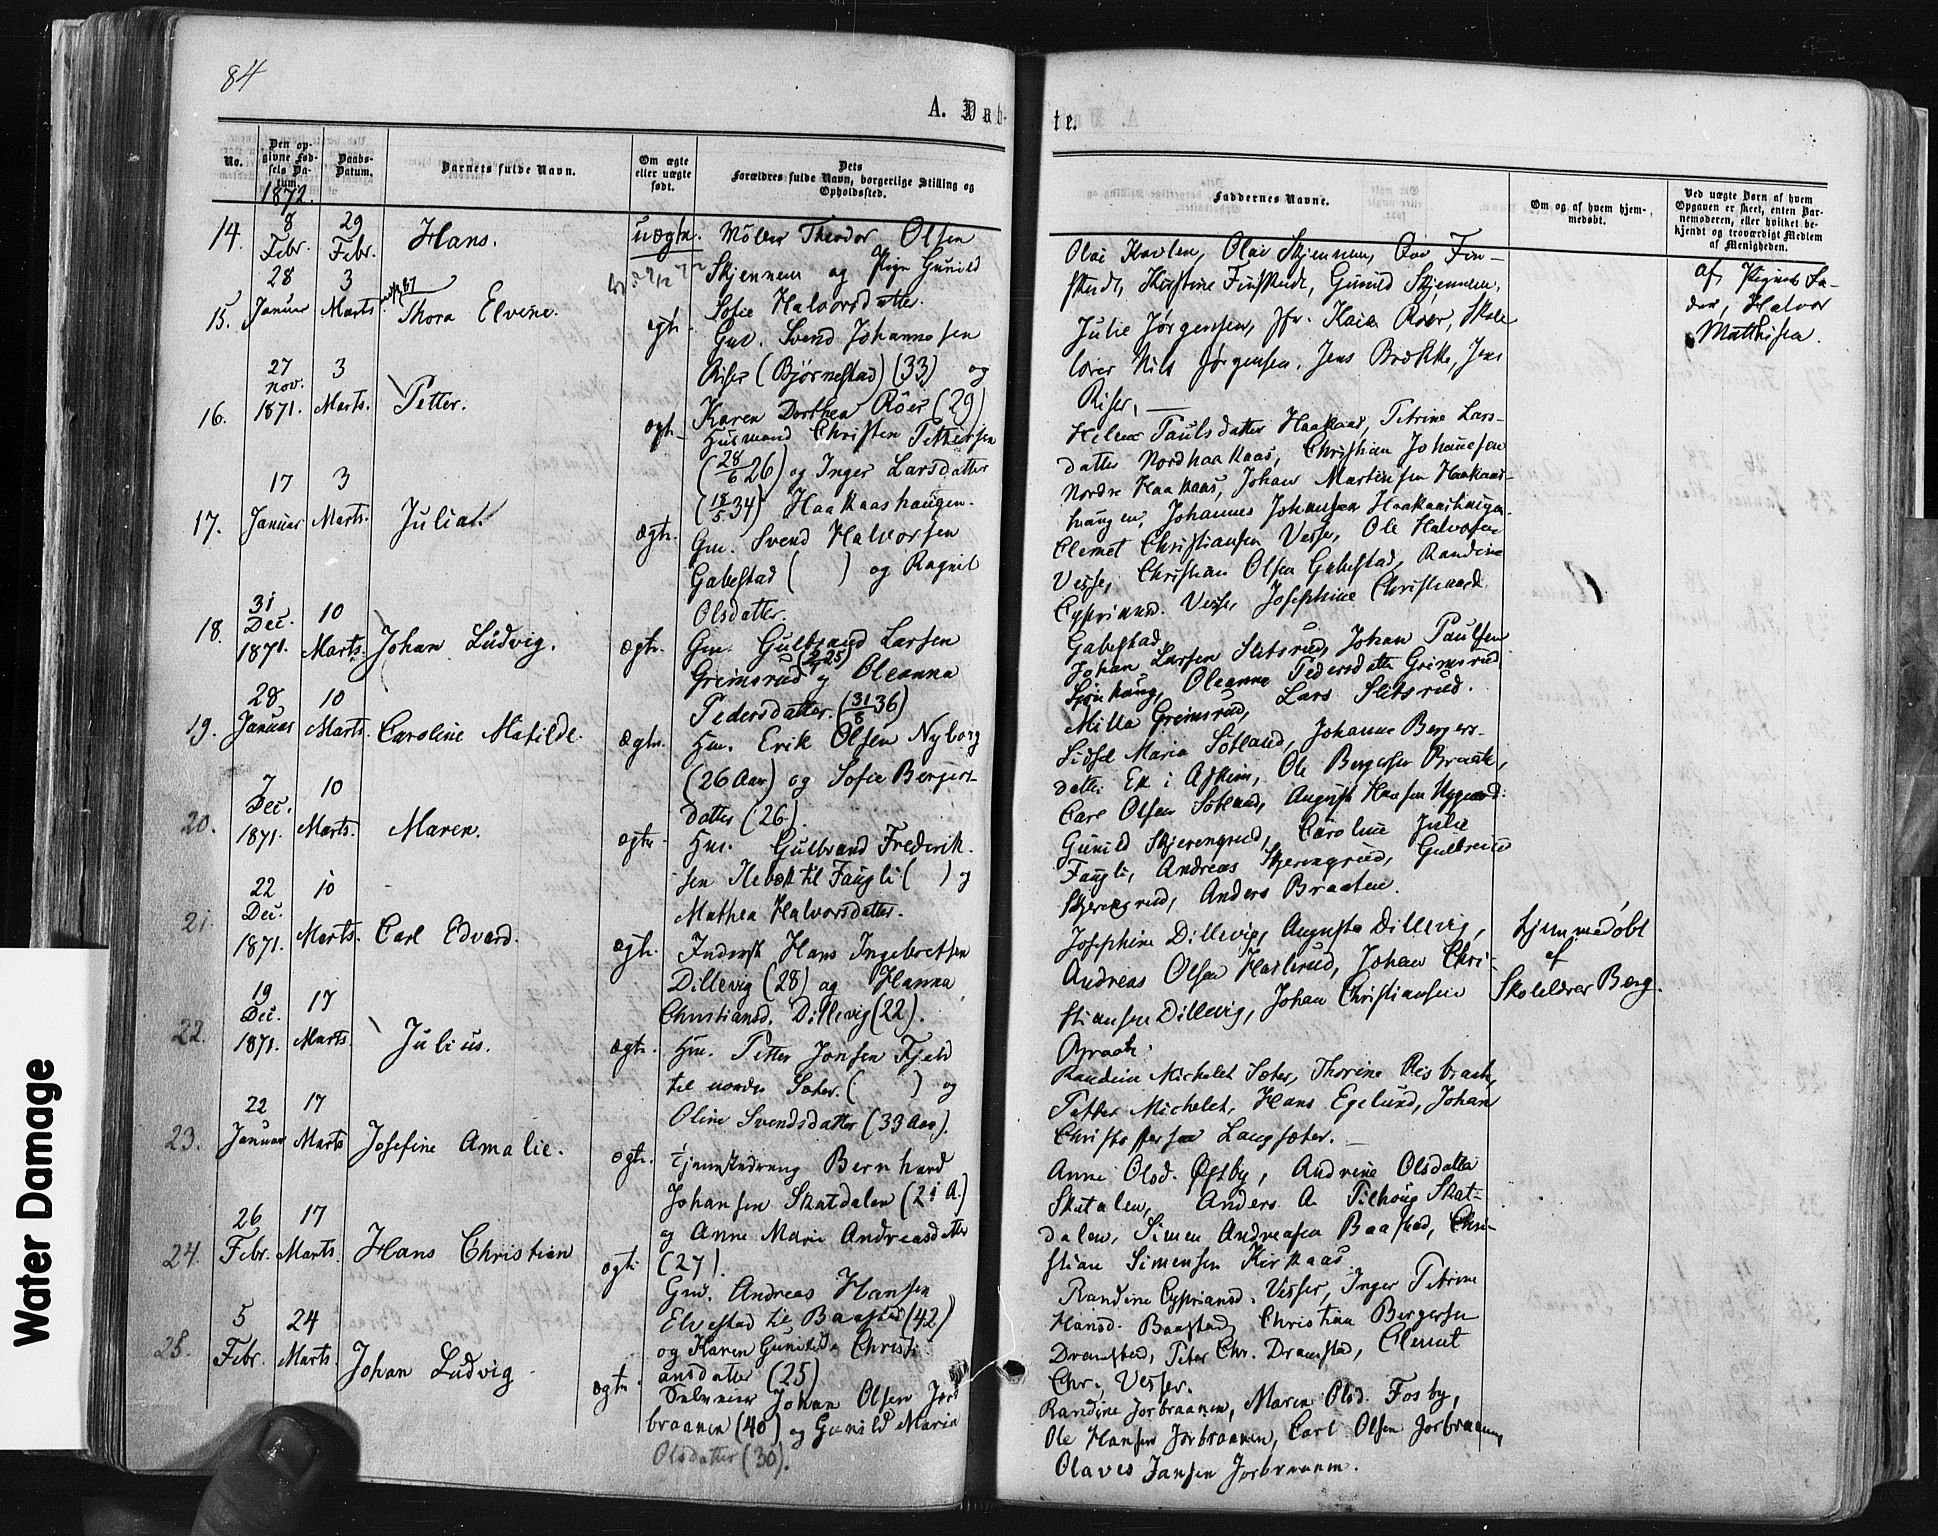 84
A. Døb-
te.
No.
Den op-
givne Fød-
sels Da-
tum.
Daabs-
Datum.
Barnets fulde Navn.
Om ægte
eller uægte
født.
Dets
Forældres fulde Navn, borgerlige Stilling og
Opholdssted.
Faddernes Navne.
Om og af hvem hjem-
medøbt.
Ved uægte Børn af hvem
Opgaven er skeet, enten Bar-
nemoderen, eller hvilket be-
kjendt og troværdigt Medlem
af Menigheden.
1872.
14. 8 Febr. 29 Febr. Hans. uægte.
Möller Theodor Olsen
Skjennem og Pige Gunild
Sofie Halvorsdatter.
Olai Karlen, Olai Skjennem,
Kirstine Finstad, Gunild Skjennem.
af Pigens Fa-
der, Halvor
Matthisen.
15. 28 Januar 3 Marts Thora Elvine. ægte.
Gmd. Svend Johannesen
Riser (Bjørnestad) (33) og
Karen Dorthea Röer (29)
Julie Jørgensen, Jfr. Kaia Röer, Skole
lærer Nils Jørgensen, Jens Brække, Jens
Riser,
16. 27 nov. 1871. 3 Marts. Petter. ægte
Husmand Christen Pettersen
(28/6 26) og Inger Larsdatter
(18/5 34) Haakaashaugen.
Helene Paulsdatter Haakaas, Petrine Lars-
datter Nordhaakaas, Christian Johannesen
Nordre Haakaas, Johan Martinsen Haakaas-
haugen, Johannes Johansen Haakaashaugen.
17. 17 Januar 3 Marts. Julia. ægte.
Gm. Svend Halvorsen
Gabestad ( ) og Ragnil
Olsdatter.
Clemet Christiansen Vesse, Ole Halvorsen
Vesse, Christian Olsen Gabestad, Randine
Cypriansd. Vesse, Josephine Christiansd.
Gabestad.
18. 31 Dec. 1871. 10 Marts. Johan Ludvig. ægte.
Gm. Gulbrand Larsen
Grimsrud (2/7 25) og Oleanna
Pedersdatter. (31/8 36)
Johan Larsen Slitsrud, Johan Paulsen
Sjönhaug, Oleanne Pedersdatter Grimsrud
Milla Grimsrud, Lars Slitsrud.
19. 28 Januar 10 Marts. Caroline Matilde. Ægte.
Hm. Erik Olsen Nyborg
(26 Aar) og Sofie Bergers-
datter (26).
Sidsel Maria Sötland, Johanne Bergers-
datter Ek i Askim, Ole Bergersen Braate,
Carl Olsen Sötland, August Hansen Nygaard.
20. 7 Dec. 1871. 10 Marts. Maren. ægte
Hm. Gulbrand Frederik-
sen Ilebæk til Faugli ( ) og
Mathea Halvorsdatter.
Gunild Skjerengrud, Caroline Julie
Faugli, Andreas Skjerengrud,
Skjerengrud, Anders Braaten.
21. 22 Dec. 1871. 10 Marts. Carl Edvard. ægte.
Inderst Hans Ingebretsen
Dillevig (28) og Hanna
Christiansd. Dillevig (22).
Josephine Dillevig, Augusta Dillevig,
Andreas Olsen Haslerud, Johan Chri-
stiansen Dillevig, Johan Christiansen
Braate.
hjemmedøbt
af
Skolelærer Berg.
22. 19 Dec. 1871. 17 Marts. Julius. ægte.
Hm. Petter Jonsen Fjeld
til nordre Sæter. ( ) og
Oline Svendsdatter (33 Aar).
Randine Michelet Sæter, Thorine Risbraate,
Petter Michelet, Hans Egelund, Johan
Christophersen Langsæter.
23. 22 Januar 17 Marts Josefine Amalie. ægte.
Tjenestedreng Bernhard
Johansen Skatdalen (21 A.)
og Anne Marie Andreasdatter
(27).
Anne Olsd. Østby, Andrine Olsdatter
Skatalen, Anders A. Tilhoug Skat-
dalen, Simen Andreasen Baastad, Chri-
stian Simensen Kirkaas.
24. 26 Febr. 17 Marts. Hans Christian ægte
Gmd. Andreas Hansen
Elvestad til Baastad (42)
og Karen Gunilda Christi-
ansdatter (25)
Randine Cypriansd. Vesser, Inger Petrine
Hansd. Baastad, Christina Bergersen
Dramstad, Peter Chr. Dramstad, Clemet
Chr. Vesser.
25. 5 Febr. 24 Marts. Johan Ludvig ægte
Selveier Johan Olsen Jord
braanen (40) og Gunild Maria
Olsdatter (30).
Randine Jorbraanen, Maren Olsd. Fosby,
Ole Hansen Jorbraanen, Carl Olsen Jorbraanen,
Olaves Jansen Jorbraanen.
Water Damage